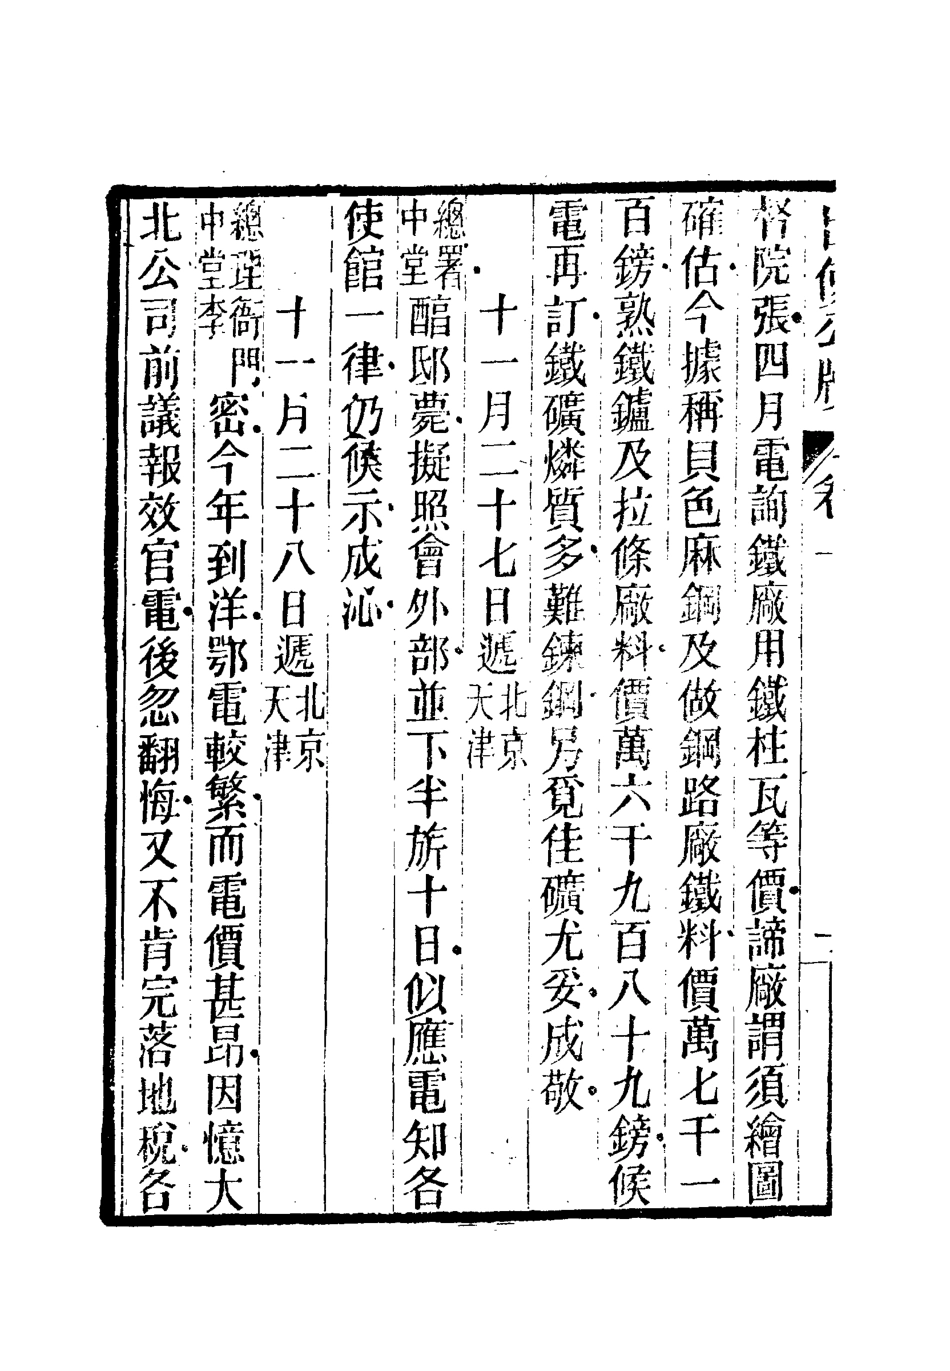 出使公牘 卷一
督院張四月電詢鐵廠用鐵柱瓦等價諦廠謂須繪圖
確估今據稱貝色麻鋼及做鋼路廠鐵料價萬七千一
百鎊熟鐵鑪及拉條廠料價萬六千九百八十九鎊候
電再訂鐵礦燐質多難鍊鋼另覓佳礦尤妥成敬
十一月二十七日遞北京天津
總署中堂醕邸薨擬照會外部並下半旂十日似應電知各
使館一律仍候示成沁
十一月二十八日遞北京天津
總理衙門中堂李密今年到洋鄂電較繁而電價甚昂因憶大
北公司前議報效官電後忽翻悔又不肯完落地稅各